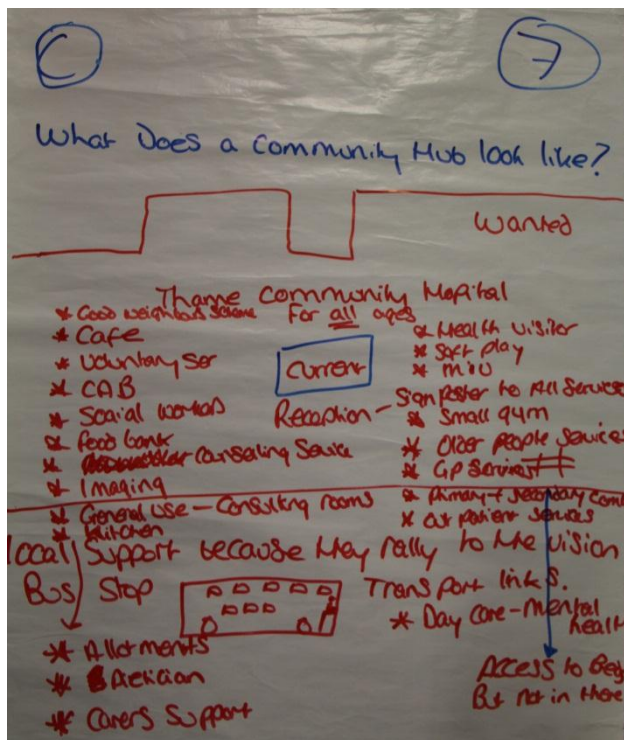 C
7
What Does a Community Hub look like?
Wanted
Thame Community Hospital
For all ages
* Good neighbour scheme
* Cafe
* Voluntary Ser
* CAB
* Social workers
* Food bank
* Counseling Service
* Imaging
* General use - Consulting rooms
* Kitchen
Current
Reception - Sign poster to All Services
* Health visitor
* Soft play
* MIU
* Small gym
* Older People Services
* GP Services
* Primary + secondary
* Out patient services
local Support because they rally to the vision
Bus Stop
Transport links.
* Day care - mental
health
* Allotments
* Dietician
* Carers Support
Access to Beds
But not in there